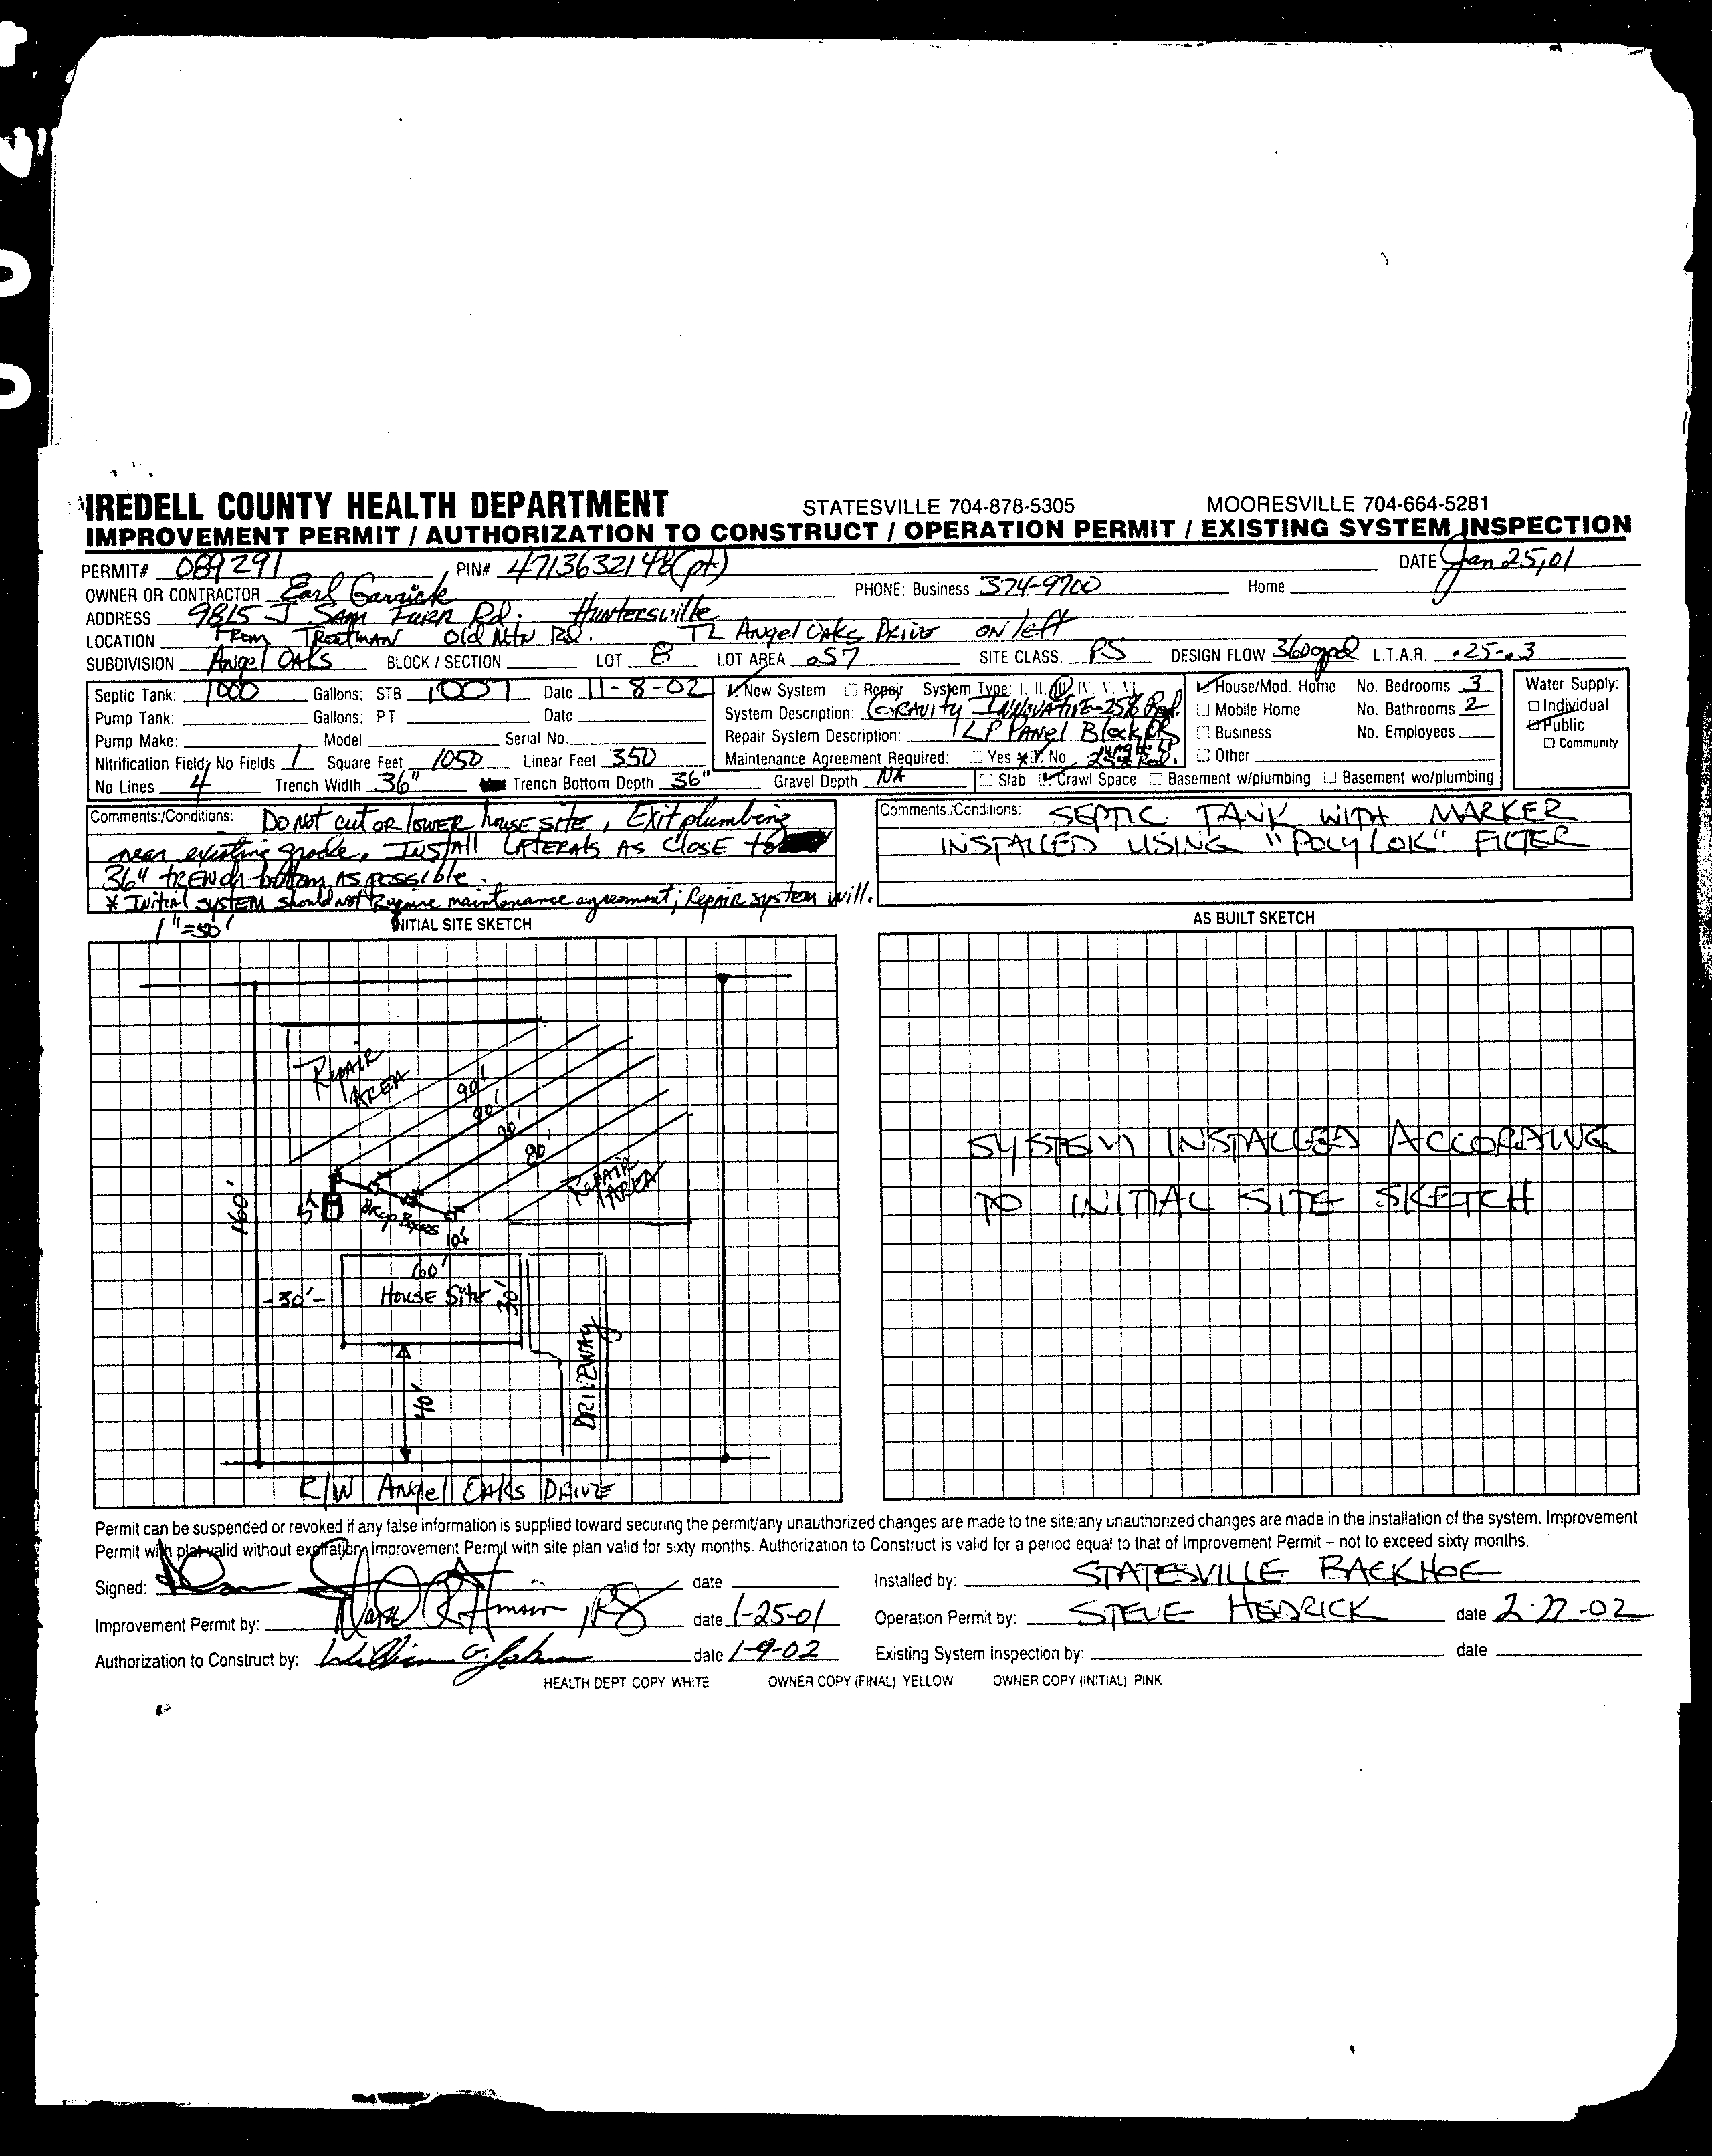 IREDELL COUNTY HEALTH DEPARTMENT STATESVILLE 704-878-5305 MOORESVILLE 704-664-5281
IMPROVEMENT PERMIT / AUTHORIZATION TO CONSTRUCT / OPERATION PERMIT / EXISTING SYSTEM INSPECTION
PERMIT# 089291 PIN# 4713632148(pt) DATE Jan 25,01
OWNER OR CONTRACTOR Earl Garrick PHONE: Business 374-9700 Home
ADDRESS 9815-J Sam Furr Rd. Huntersville
LOCATION From Troutman Old Mtn Rd. TL Angel Oaks Drive on left
SUBDIVISION Angel Oaks BLOCK / SECTION LOT 8 LOT AREA .57 SITE CLASS. PS DESIGN FLOW 360gpd L.T.A.R. .25-.3
Septic Tank: 1000 Gallons: STB 1007 Date 11-8-02 New System Repair System Type: I. II. III IV. V. VI House/Mod. Home No. Bedrooms 3 Water Supply:
Pump Tank: Gallons; PT Date System Description: GRAVITY INNOVATIVE-25% Red. Mobile Home No. Bathrooms 2 Individual
Pump Make: Model Serial No. Repair System Description: LP PANEL Block OR Business No. Employees Public
Nitrification Field; No Fields 1 Square Feet 1050 Linear Feet 350 Maintenance Agreement Required: Yes * No 25% Red. Other Community
No Lines 4 Trench Width 36" Trench Bottom Depth 36" Gravel Depth NA Slab Crawl Space Basement w/plumbing Basement wo/plumbing
Comments:/Conditions: DO NOT cut OR lOWER house SITE, Exit plumbing
near existing grade. INSTAll LATERALS AS ClOSE to
36" TRENch bottom AS possible.
* Initial SYSTEM should NOT Require maintenance agreement; Repair system will.
Comments:/Conditions: SEPTIC TANK WITH MARKER
INSTALLED USING "POLYLOK" FILTER
1"=50' INITIAL SITE SKETCH
REPAIR
AREA
90'
90'
90'
80'
REPAIR
AREA
160'
ST
Drop Boxes
10'
60'
-30'- HOUSE Site 30'
40'
DRIVEWAY
R/W Angel OAKS DRIVE
AS BUILT SKETCH
SYSTEM INSTALLED ACCORDING
TO INITIAL SITE SKETCH
Permit can be suspended or revoked if any false information is supplied toward securing the permit/any unauthorized changes are made to the site/any unauthorized changes are made in the installation of the system. Improvement
Permit with plat valid without expiration. Improvement Permit with site plan valid for sixty months. Authorization to Construct is valid for a period equal to that of Improvement Permit – not to exceed sixty months.
Signed: date Installed by: STATESVILLE BACKHOE
Improvement Permit by: date 1-25-01 Operation Permit by: STEVE HEDRICK date 2-22-02
Authorization to Construct by: William date 1-9-02 Existing System Inspection by: date
HEALTH DEPT. COPY. WHITE OWNER COPY (FINAL) YELLOW OWNER COPY (INITIAL) PINK